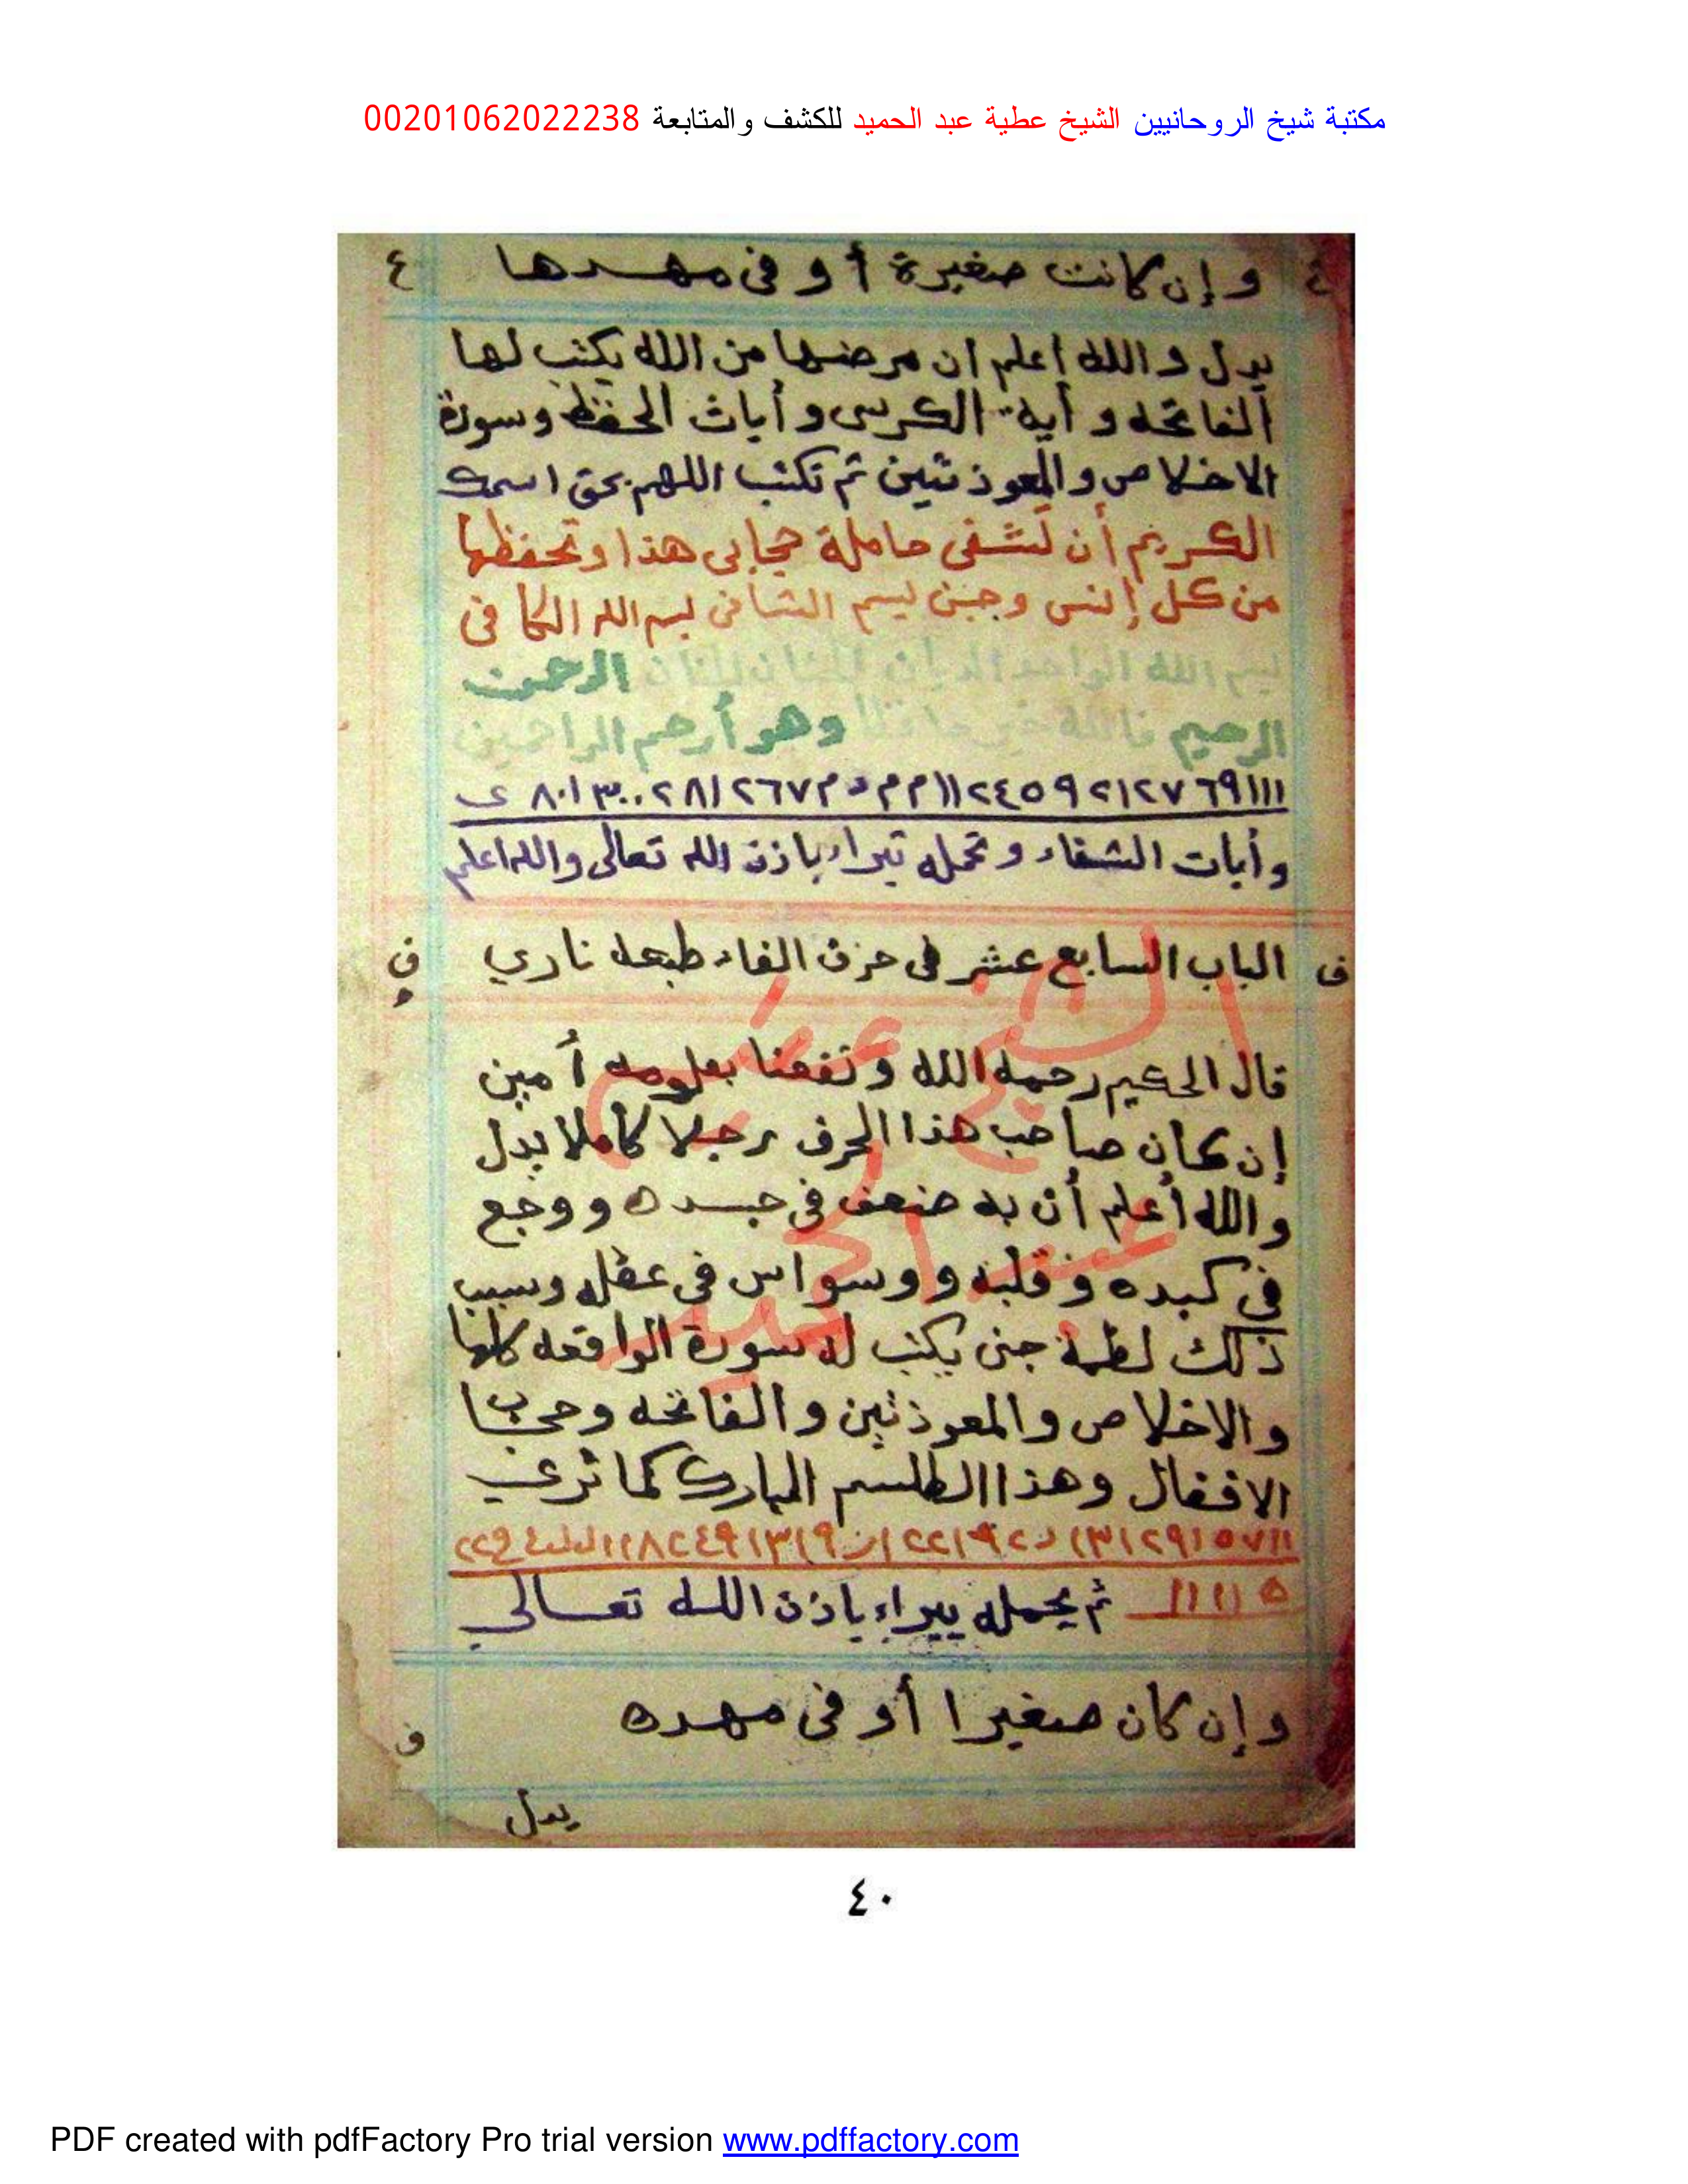 مكتبة شيخ الروحانيين الشيخ عطية عبد الحميد للكشف والمتابعة 00201062022238
وإن كانت صغيرة أو فى مهدها ع
يدل والله أعلم ان مرضها من الله يكتب لها
الفاتحه وأية الكرسى وأيات الحفظ وسورة
الاخلاص والمعوذتين ثم تكتب اللهم بحق اسمك
الكريم أن تشفى حاملة حجابى هذا وتحفظها
من كل إنس وجن بسم الشافى بسم الله الكافى
بسم الله الواحد الديان الرحمن
الرحيم فالله خير حافظا وهو أرحم الراحمين
وأيات الشفاء وتحمله تبراء باذن الله تعالى والله اعلم
ف الباب السابع عشر فى حرف الفاء طبعه ناري ف
قال الحكيم رحمه الله ونفعنا بعلومه أمين
إن كان صاحب هذا الحرف رجلا كاملا يدل
والله أعلم أن به ضعف فى جسده ووجع
فى كبده وقلبه ووسواس فى عقله وسبب
ذلك لطمة جنى يكتب له سورة الواقعه كلها
والاخلاص والمعوذتين والفاتحه وحجاب
الاقفال وهذا الطلسم المبارك كما ترى
ثم يحمله يبراء باذن الله تعالى
وإن كان صغيرا أو فى مهده
ف
يدل
الشيخ عطية
عبد الحميد
٤٠
PDF created with pdfFactory Pro trial version www.pdffactory.com